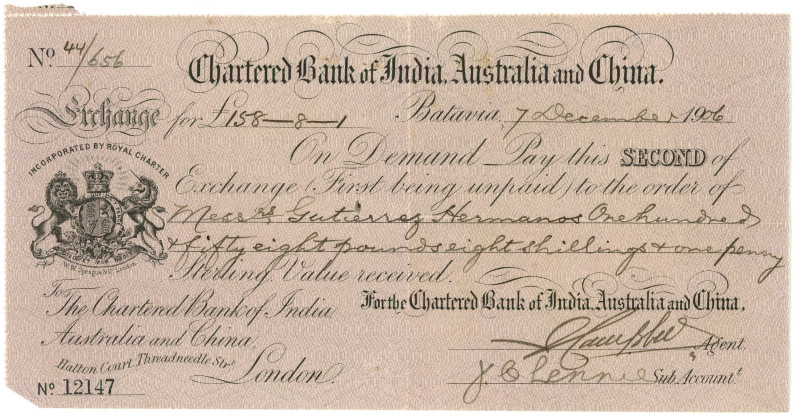 No. 44/656
Chartered Bank of India, Australia and China.
Exchange for £158-8-1 Batavia, 7 December 1906
INCORPORATED BY ROYAL CHARTER
On Demand Pay this SECOND of
Exchange (First being unpaid) to the order of
Messrs Gutierrez Hermanos One hundred
& fifty eight pounds eight shillings & one penny
Sterling Value received.
To
The Chartered Bank of India
Australia and China,
Hatton Court, Threadneedle Strt.
London.
For the Chartered Bank of India, Australia and China.
Campbell Agent.
Sub Accountt
No. 12147